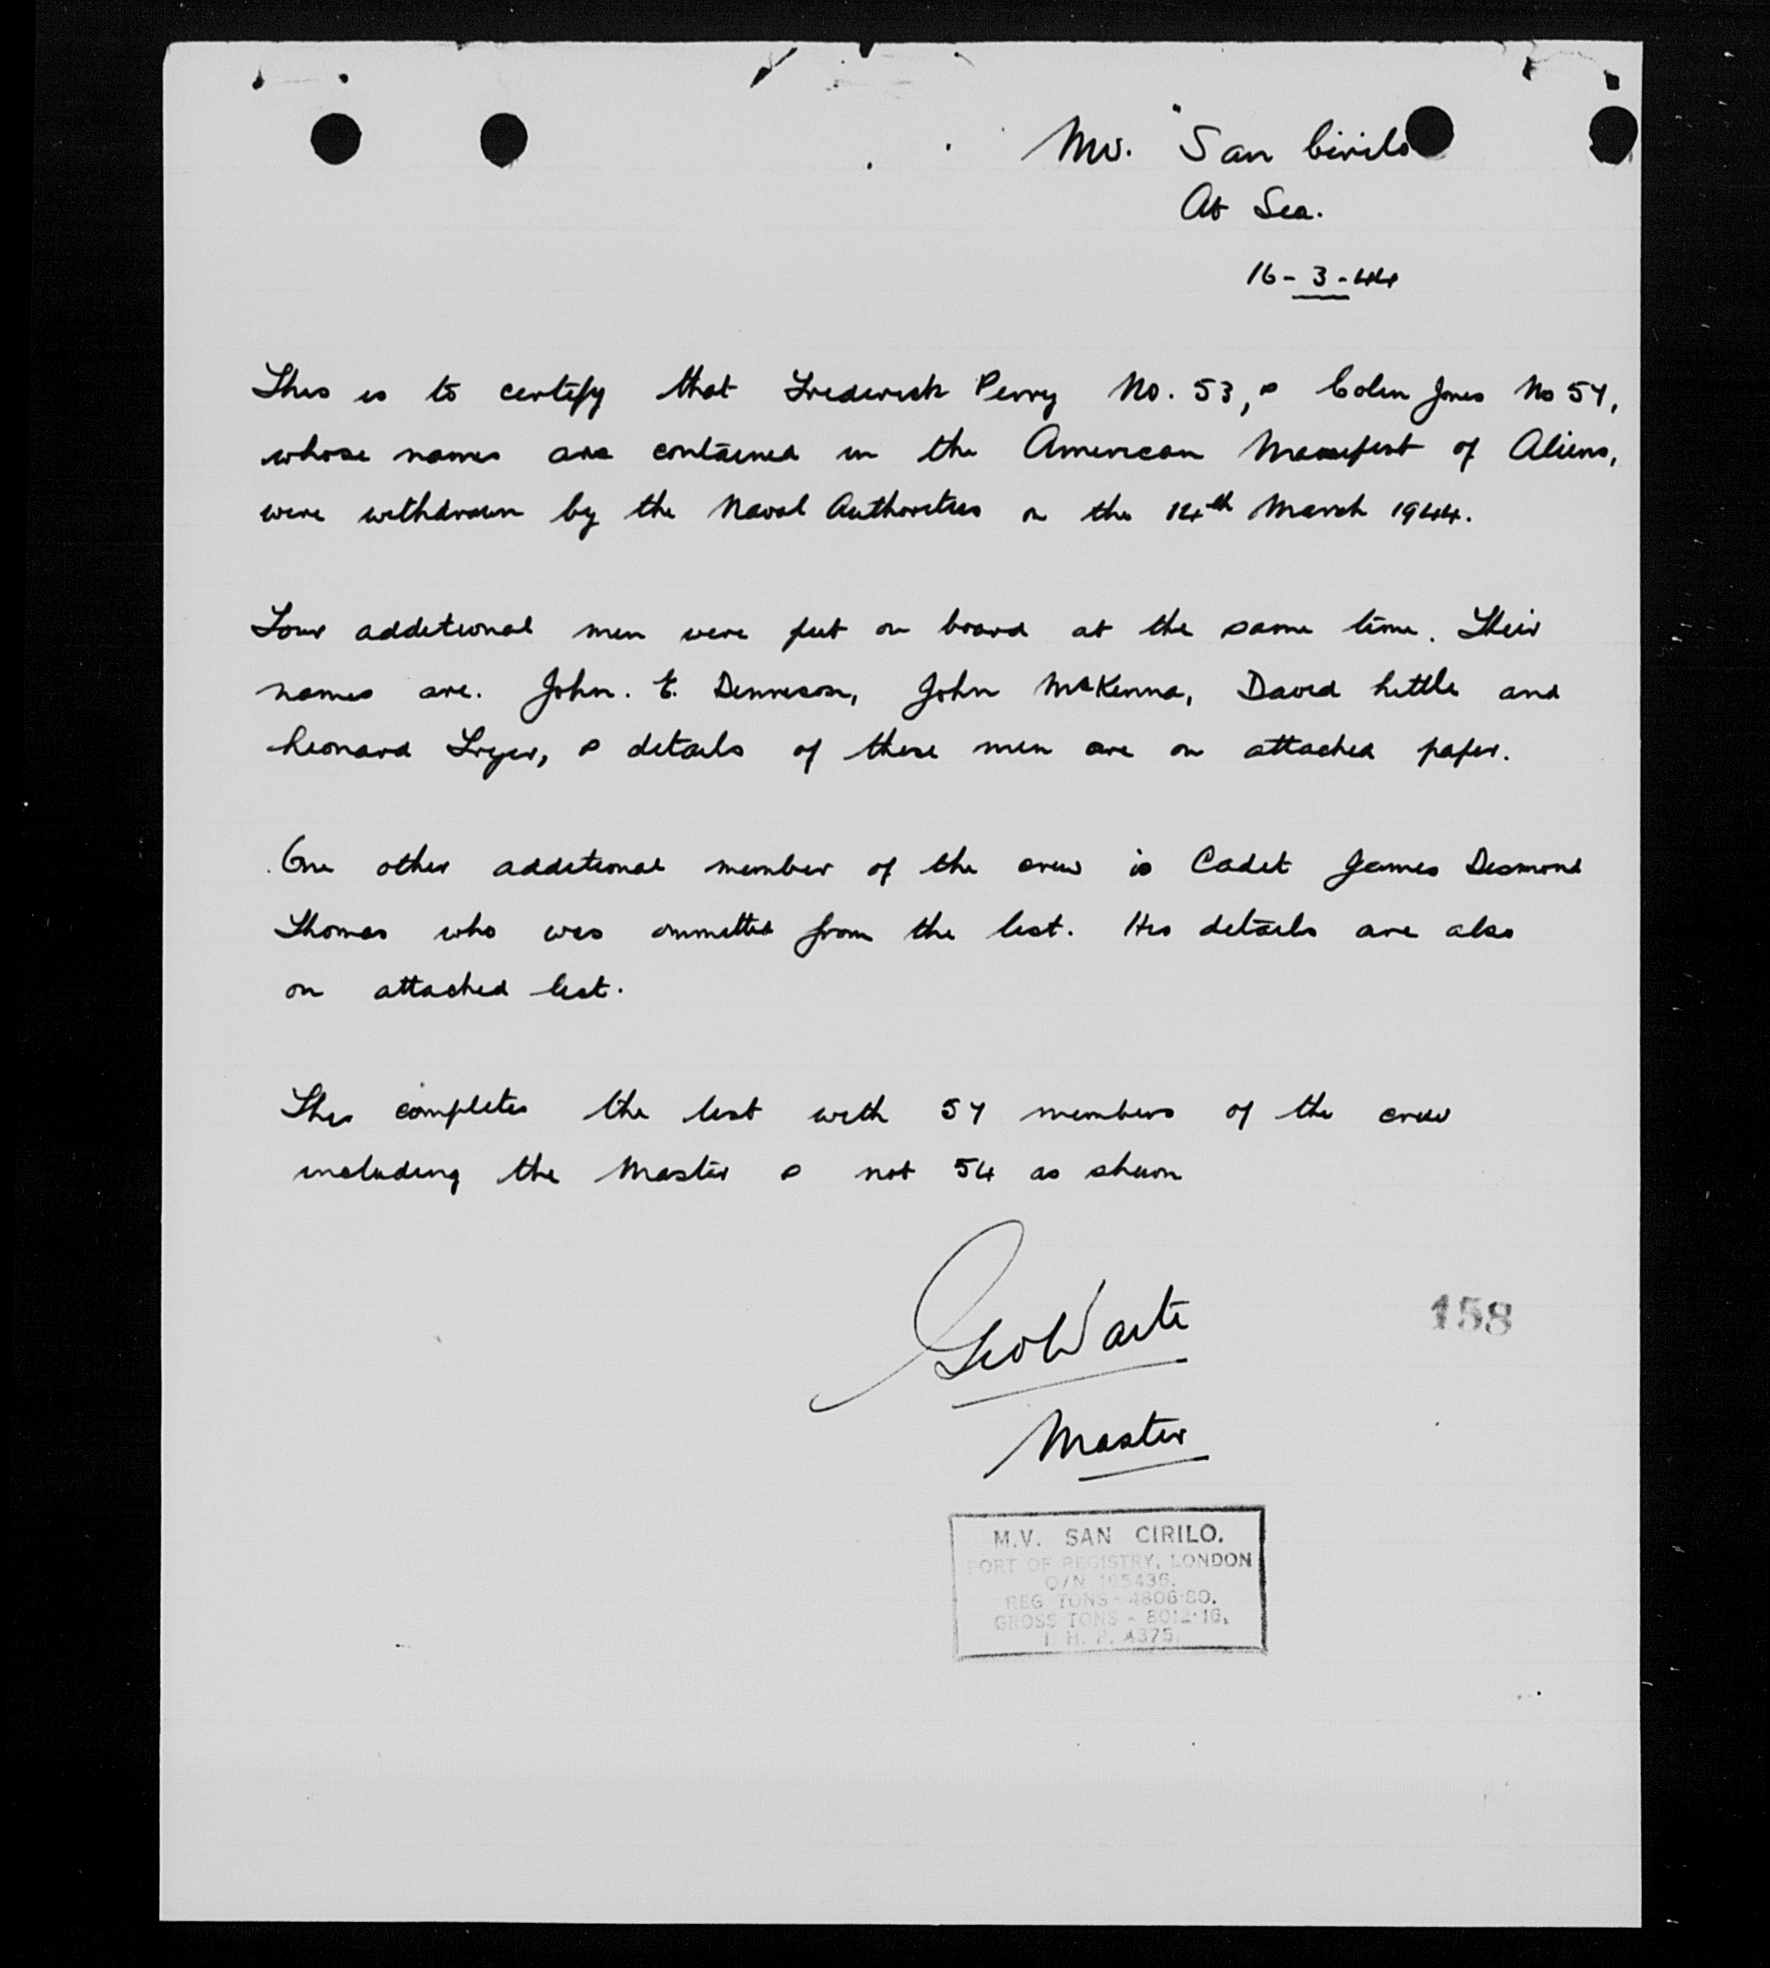 MV. "San Cirilo
At Sea.
16-3-44
This is to certify that Frederick Perry No. 53, & Colin Jones No 57,
whose names are contained in the American Manifest of Aliens,
were withdrawn by the Naval Authorities on the 14th March 1944.
Four additional men were put on board at the same time. Their
names are. John. E. Dennison, John McKenna, David Little and
Leonard Fryer, & details of these men are on attached paper.
One other additional member of the crew is Cadet James Desmond
Thomas who was ommitted from the list. His details are also
on attached list.
This completes the list with 57 members of the crew
including the Master & not 54 as shewn
Geo Waite
158
Master
M.V. SAN CIRILO.
PORT OF REGISTRY, LONDON
O/N 165436.
REG TONS - 4806·80.
GROSS TONS - 8012·16.
H. P. 4375.